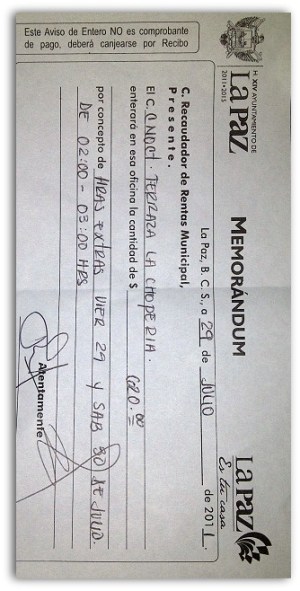 H. XIV AYUNTAMIENTO DE
La Paz
2011•2015
MEMORÁNDUM
La Paz
Es tu casa
La Paz, B. C. S., a 29 de JULIO de 2011.
C. Recaudador de Rentas Municipal,
Presente.
El C. TERRAZA LA CHOPERIA.
enterará en esa oficina la cantidad de $ 620.00
por concepto de HRAS EXTRAS VIER 29 Y SAB 30 DE JULIO.
DE 02:00 - 03:00 HRS
Atentamente
Este Aviso de Entero NO es comprobante
de pago, deberá canjearse por Recibo